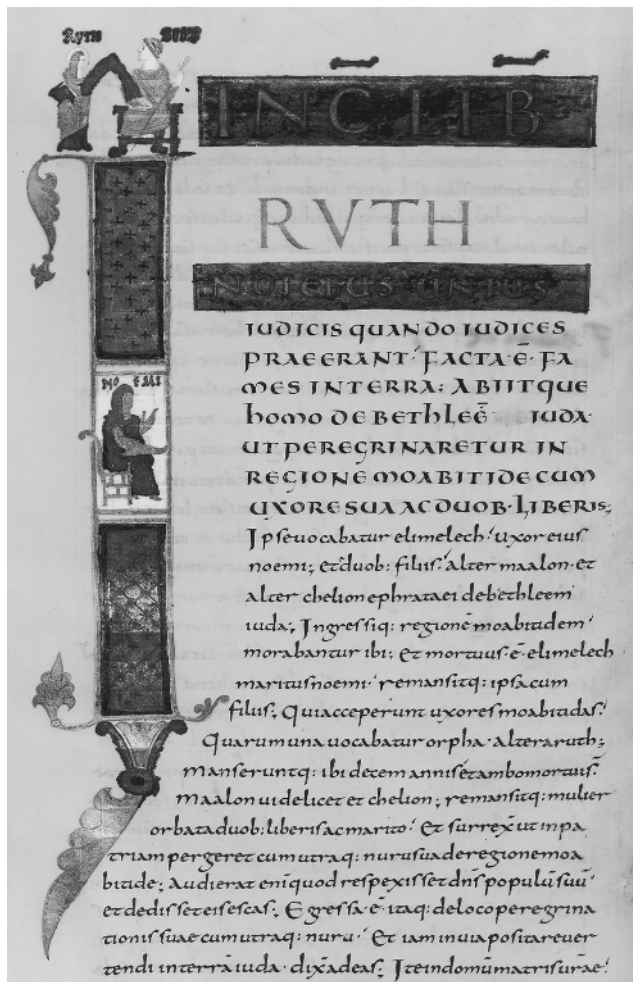 RUTH BOOZ
INC LIB
RVTH
IN DIEBUS UNIUS
NOEMI
IUDICIS QUANDO IUDICES
PRAEERANT. FACTA·Ē· FA
MES INTERRA; ABIITQUE
homo DE BEThLEĒ IUDA·
UT PEREGRINARETUR IN
REGIONE MOABITIDE CUM
UXORE SUA AC DUOB· LIBERIS;
Ipse uocabatur elimelech. uxor eius
noemi; et duob: filiis. alter maalon· et
alter chelion ephrataei debethleem
iuda; Ingressiq: regionē moabitidem·
morabantur ibi; Et mortuus·ē· elimelech
maritus noemi· remansitq: ipsa cum
filiis; Qui acceperunt uxores moabitidas.
Quarum una uocabatur orpha· altera ruth;
manseruntq: ibi decem annis et ambo mortui s̄·
maalon uidelicet et chelion; remansitq: mulier
orbata duob: liberis ac marito· Et surrex̄ ut in pa
triam pergeret cum utraq: nuru sua de regione moa
bitide; Audierat eni̅ quod respexisset dn̄s populū suū·
et dedisset eis escas; Egressa·ē· itaq: de loco peregrina
tionis suae cum utraq: nuru· Et iam in uia posita reuer
tendi in terrā iuda· dix̄ ad eas; Ite in domum matris ur̄ae·